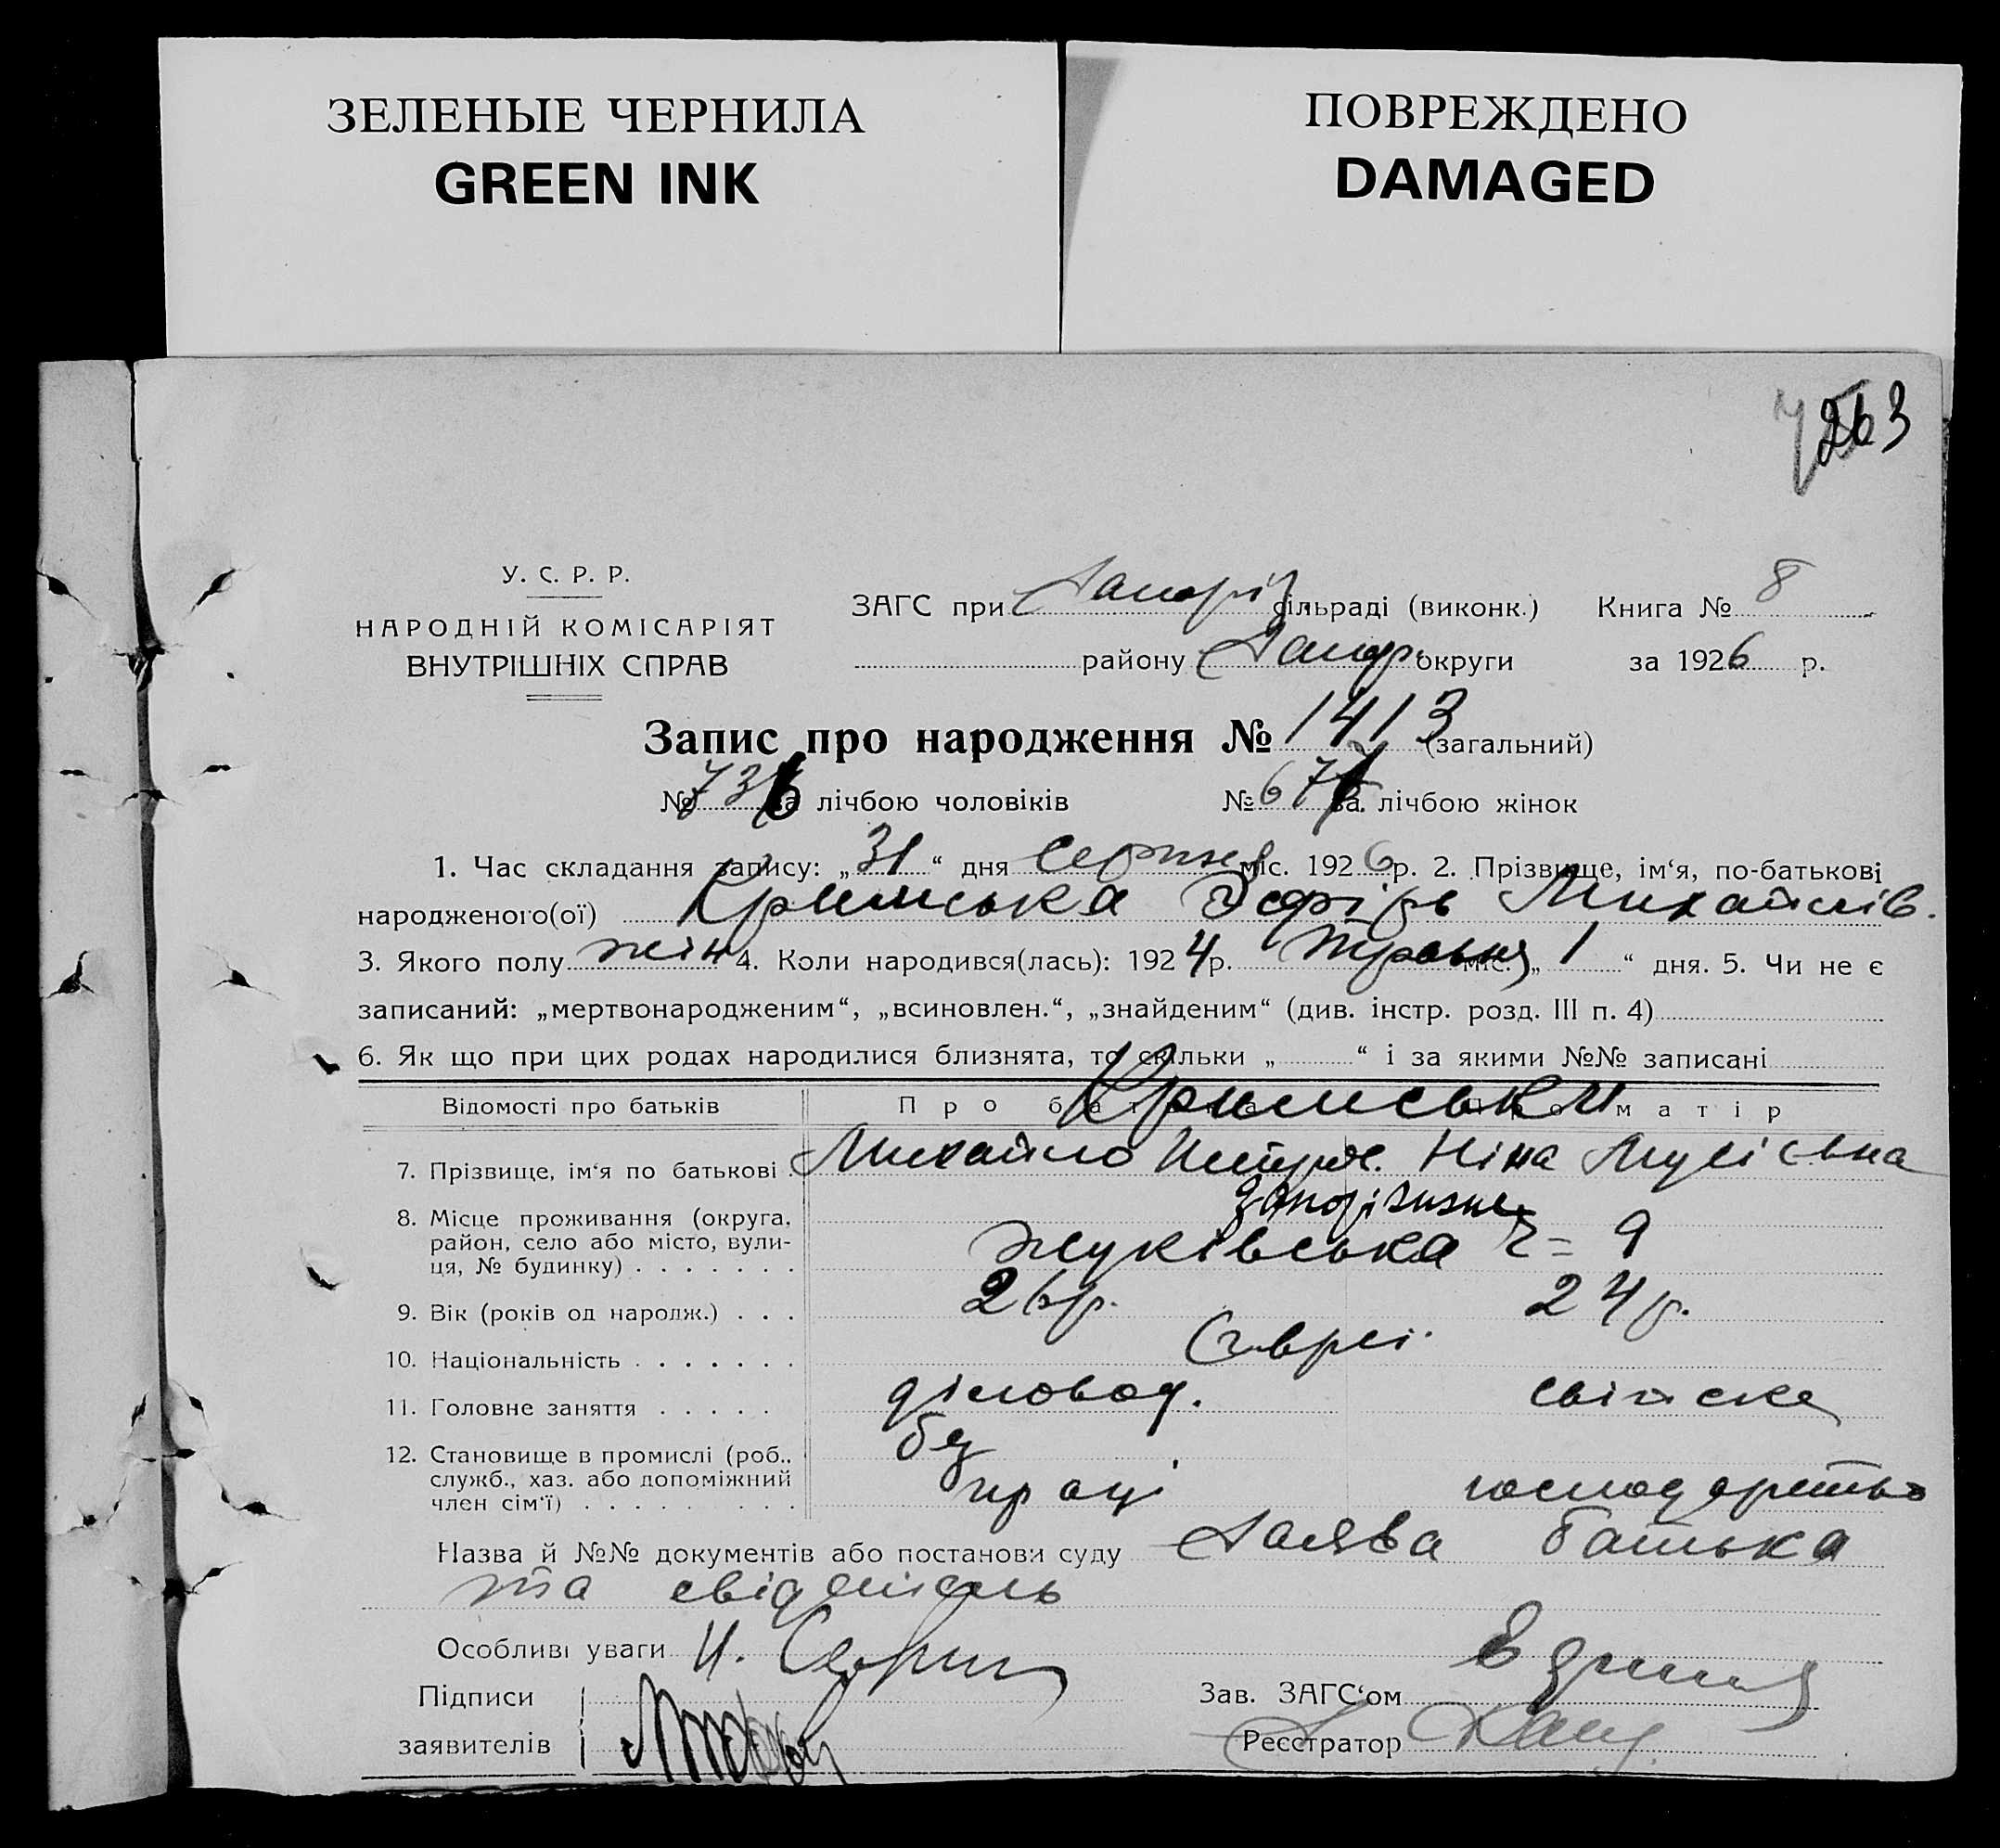 ЗЕЛЕНЫЕ ЧЕРНИЛА
GREEN INK
ПОВРЕЖДЕНО
DAMAGED
263
У. С. Р. Р.
НАРОДНІЙ КОМІСАРІЯТ
ВНУТРІШНІХ СПРАВ
ЗАГС при Запоріз. сільраді (виконк.) Книга № 8
району Запор. округи за 1926 р.
Запис про народження № 1413 (загальний)
№ 736 за лічбою чоловіків № 677 за лічбою жінок
1. Час складання запису: „31“ дня Серпня міс. 1926 р. 2. Прізвище, ім‘я, по-батькові
народженого(ої) Кримська Эсфірь Михайлів.
3. Якого полу жін. 4. Коли народився(лась): 1924 р. Травня міс. „1“ дня. 5. Чи не є
записаний: „мертвонародженим“, „всиновлен.“, „знайденим“ (див. інстр. розд. III п. 4)
6. Як що при цих родах народилися близнята, то скільки „ “ і за якими №№ записані
Відомості про батьків Про батька Про матір
Кримськи
7. Прізвище, ім‘я по батькові Михайло Ніна
8. Місце проживання (округа, район, село або місто, вулиця, № будинку) Жуківська ч= 9
9. Вік (років од народж.) 26 р. 24 р.
10. Національність Єврei
11. Головне заняття діловод. свійске
12. Становище в промислі (роб., служб., хаз. або допоміжний член сім‘ї) без праці господарство
Назва й №№ документів або постанови суду Заява батька
та свідітель
Особливі уваги
Підписи
заявителів
Зав. ЗАГС‘ом
Реєстратор